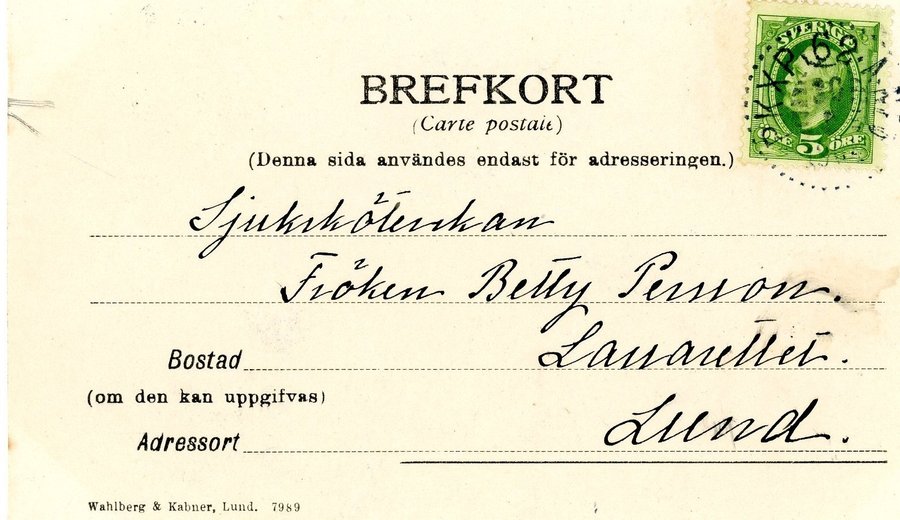 SVERIGE
5
ÖRE
ÖRE
PKXP.
BREFKORT
(Carte postale)
(Denna sida användes endast för adresseringen.)
Sjuksköterskan
Fröken Betty Persson.
Bostad Lassarettet.
(om den kan uppgifvas)
Adressort Lund.
Wahlberg & Kabner, Lund. 7989